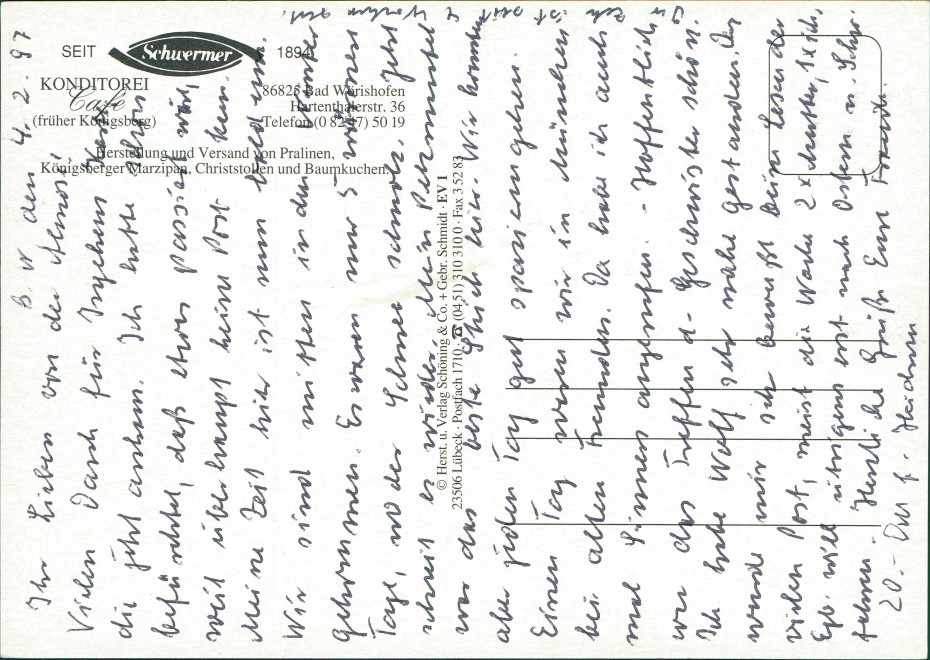 SEIT Schwermer 1894
KONDITOREI
Café
(früher Königsberg)
86825 Bad Wörishofen
Hartenthalerstr. 36
Telefon (0 82 47) 50 19
Herstellung und Versand von Pralinen,
Königsberger Marzipan, Christstollen und Baumkuchen.
© Herst. u. Verlag Schöning & Co. + Gebr. Schmidt · EV 1
23506 Lübeck · Postfach 1710 · ☎ (04 51) 310 310 0 · Fax 3 52 83
B. W den 4. 2. 97
Ihr Lieben von der
Vielen Dank für Karte
die jetzt ankam. Ich hatte schon
befürchtet, daß etwas passiert wär,
weil überhaupt keine Post kam.
Meine Zeit hier ist nun bald um.
Wir sind mitten in den Winter
gekommen. Es waren nur 5
Tage, wo der Schnee schmolz. Jetzt
schneit es wieder. Mein Pelzmantel
war das beste Stück hier. Wir konnten
aber jeden Tag gut spazierengehen.
Einen Tag waren wir in München
bei alten Freunden. Da habe ich auch
mal angerufen. - Hoffentlich
war das Treffen d. Geschwister schön.
Ich habe Wolf sehr nahe gestanden. Das
wurde mir so bewußt beim Lesen der
vielen Post, meist die Woche 2 x 1 x
will übrigens erst nach Ostern
fahren. Herzliche Grüße Eure
20.- DM f.
ist seit 4 Wochen